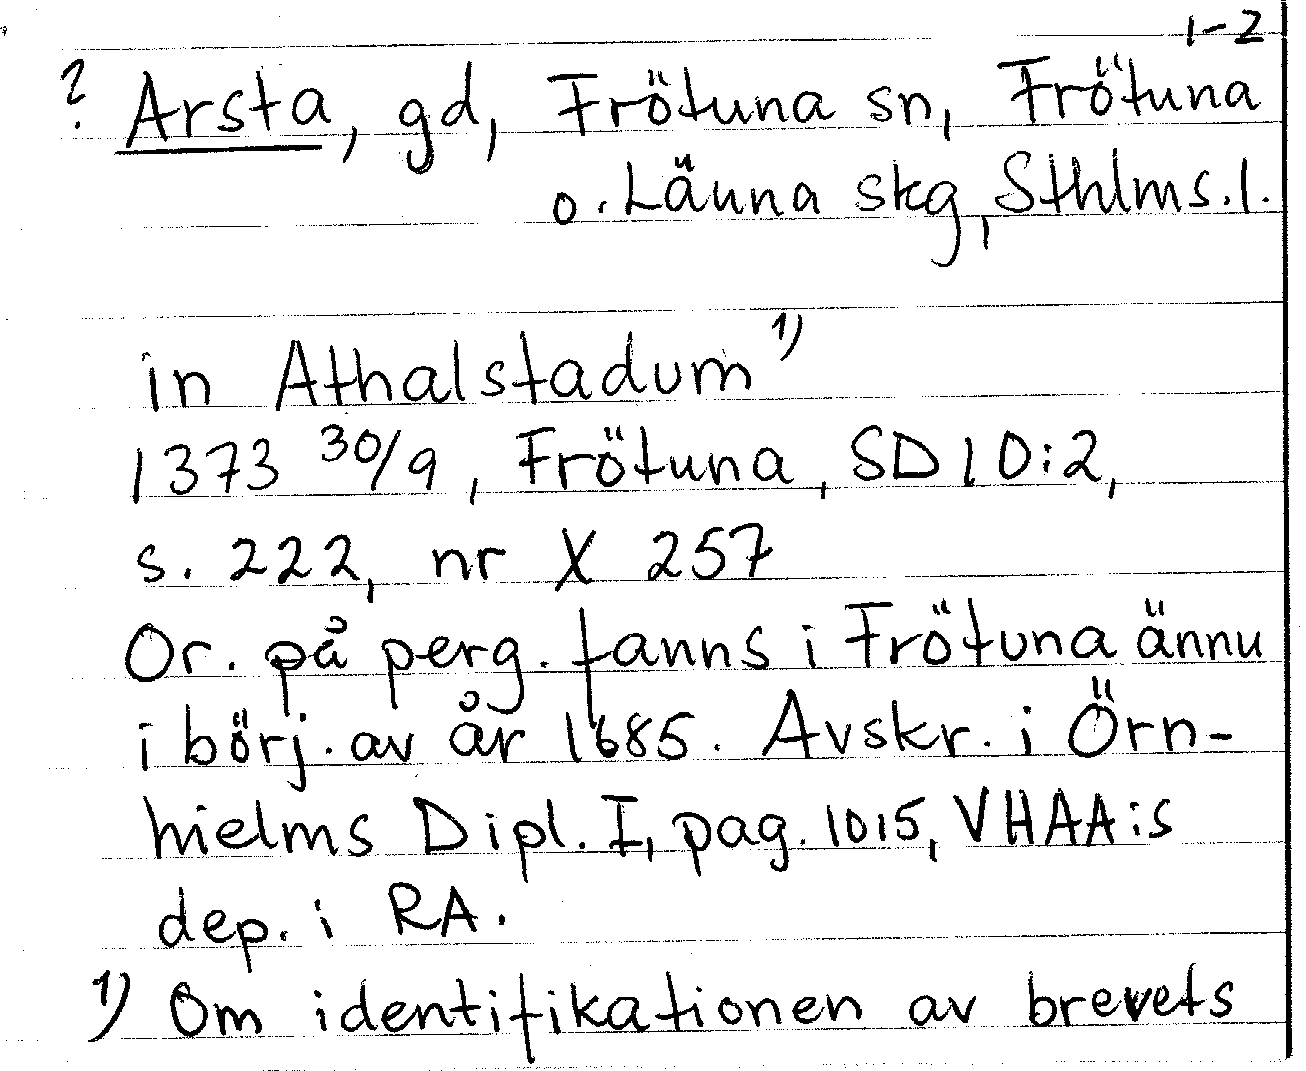 1-2
? Arsta, gd, Frötuna sn, Frötuna
o. Länna skg, Sthlms. l.
in Athalstadum 1)
1373 30/9, Frötuna, SD 10:2,
s. 222, nr X 257
Or. på perg. fanns i Frötuna ännu
i börj. av år 1685. Avskr. i Örn-
hielms Dipl. I, pag. 1015, VHAA:s
dep. i RA.
1) Om identifikationen av brevets